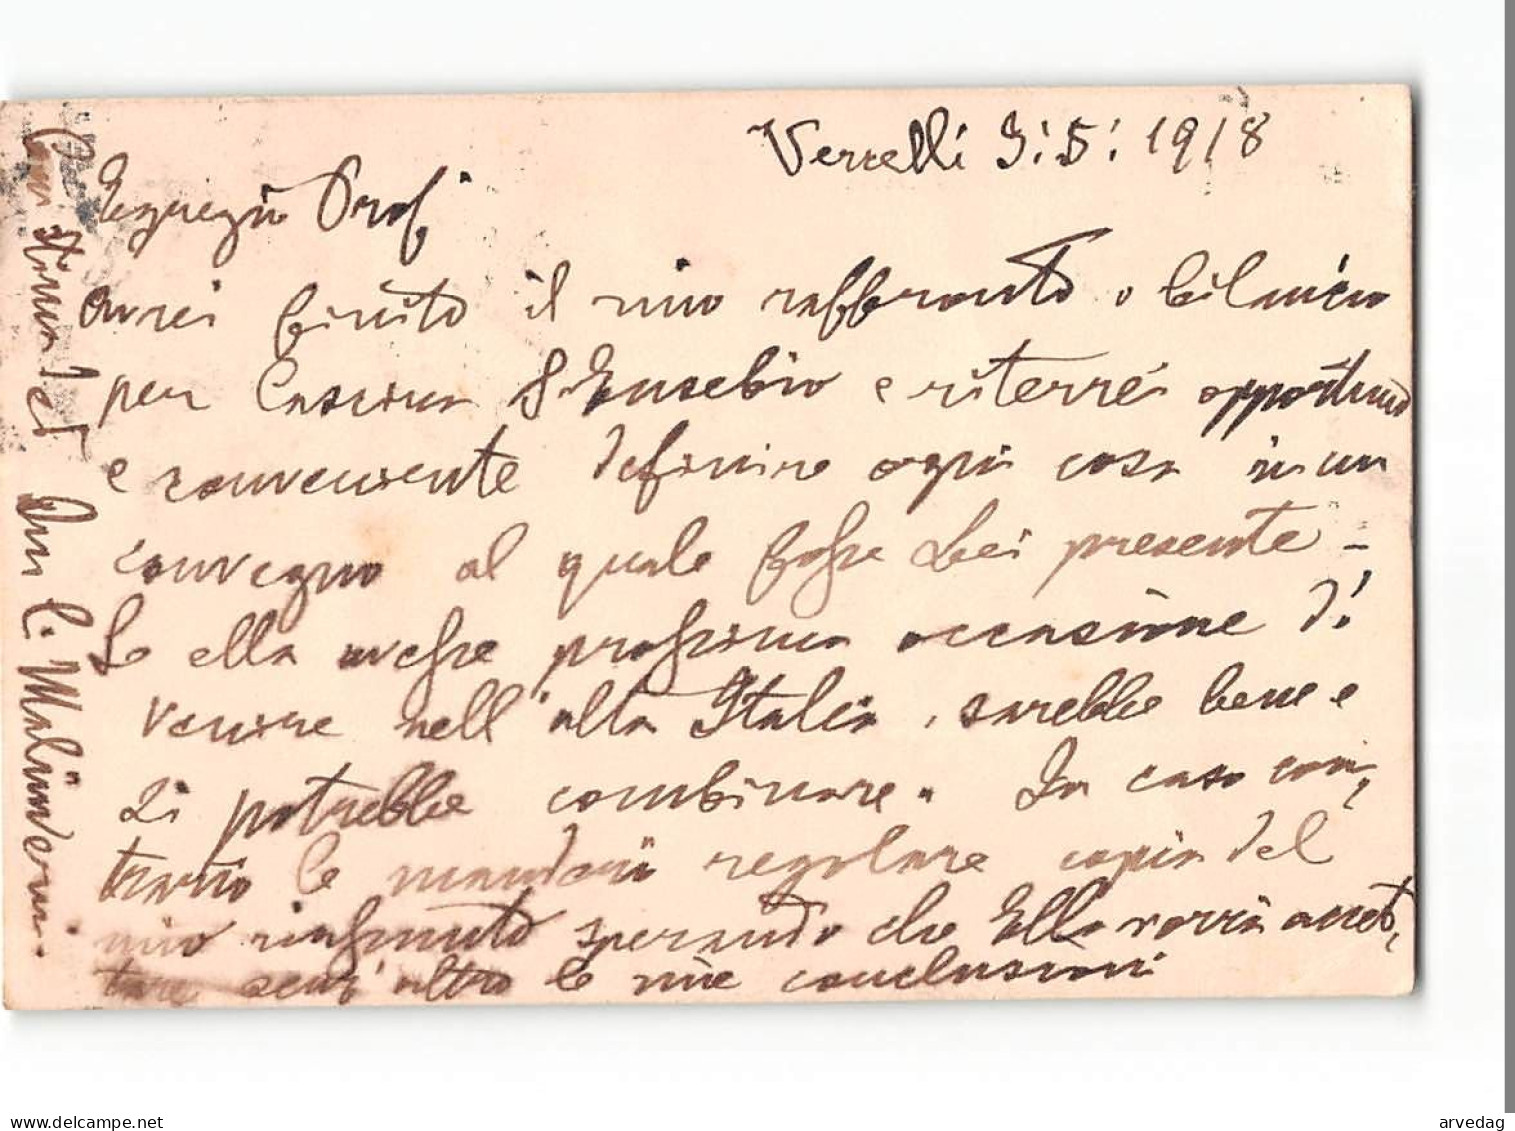 Vercelli 3.5.1918
Egregio Prof.
avrei finito il mio raffronto o bilancio
per Cascina S. Eusebio e riterrei opportuno
e conveniente definire ogni cosa in un
convegno al quale fosse Lei presente -
Se ella avesse prossima occasione di
venire nell'alta Italia, sarebbe bene e
si potrebbe combinare. In caso con,
trario le manderei regolare copia del
mio sperando che Ella vorrà accet,
tare senz'altro le mie conclusioni
Con stima dev. Malinverni
delcampe.net
arvedag